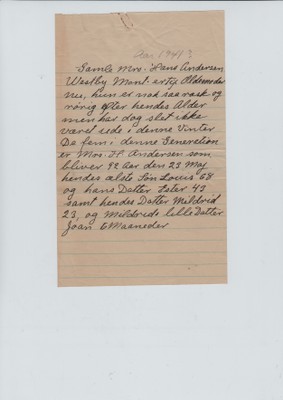 Aar 1941?
Gamle Mrs. Hans Andersen
Westby Mont. er Tip Oldemoder
nu, hun er nok saa rask og
rørig efter hendes Alder
men har dog slet ikke
været ude i denne Vinter
De fem i denne Generetion
er Mrs. H. Andersen som
bliver 92 Aar den 23 Maj
hendes ælste Søn Louis 68
og hans Datter Ester 43
samt hendes Datter Mildrid
23, og Mildrids lille Datter
Joan 6 Maaneder.